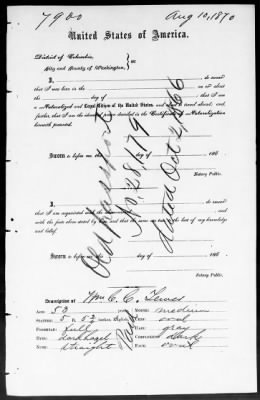 7900 Aug 10, 1870
United States of America.
District of Columbia,
City and County of Washington, } ss
I, do swear
that I was born in the on or about
the day of ; that I am
a Naturalized and Loyal Citizen of the United States, and about to travel abroad; and,
further, that I am the person described in the Certificate of Naturalization
herewith presented.
Sworn before me this day of 186
Notary Public.
Old Passport
No. 28,179
dated Oct 2, 1866
I, do swear
that I am acquainted with the
with the facts above stated by him, and that the same are true to the best of my knowledge
and belief.
Sworn before me this day of 186
Notary Public.
Description of Wm C. C.
Age: 50 Mouth: medium
Stature: 5 ft. 5 1/2 inches, Eng. Chin: oval
Forehead: full Hair: gray
Eyes: dark hazel Complexion: dark
Nose: straight Face: oval
Paid